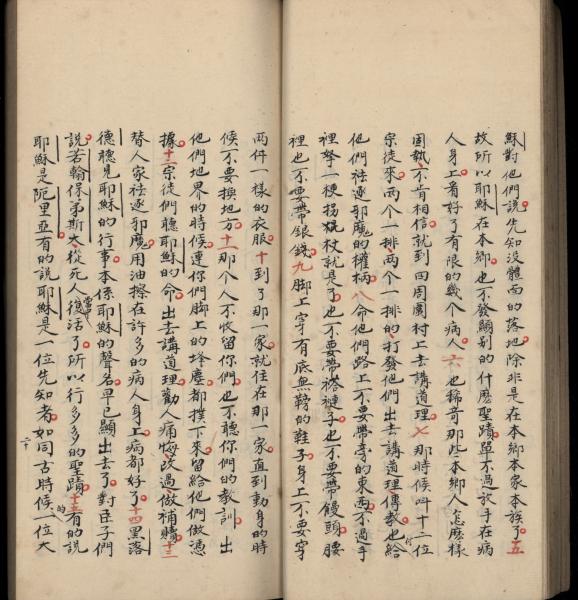 穌對他們說先知沒體面的落地除非是在本鄉本家本族了五
故所以耶穌在本鄉也不發顯別的什麼聖蹟單不過放手在病
人身上看好了有限的幾個病人六也稀奇那些本鄉人怎麼樣
固執不肯相信就到四周圍村上去講道理七那時候呌十二位
宗徒來两个一排两个一排的打發他們出去講道理傳教也給付
他們祛逐邪魔的權柄八命他們路上不要帶的東西不過手
裡拏一梗拐棍杖就是了也不要帶褡褳子也不要帶饅頭腰
裡也不要帶銀錢九脚上穿有底無鞝的鞋子身上不要穿
两件一樣的衣服十到了那一家就住在那一家直到動身的時
候不要換地方十一那个人不收留你們也不聽你們的教訓出
他們地界的時候連你們脚上的塵都撲下來留給他們做憑
據十二宗徒們聽耶穌的命出去講道理勸人痛悔改過做補贖十三
替人家祛逐邪魔用油擦在許多的病人身上病都好了十四黑落
德聽見耶穌的行事本係耶穌的聲名早已顯出去了對臣子們
說若翰保弟斯大從死人當中復活了所以行多多的聖蹟十五有的的說
耶穌是阨里亞有的說耶穌是一位先知者如同古時候一位大
二十